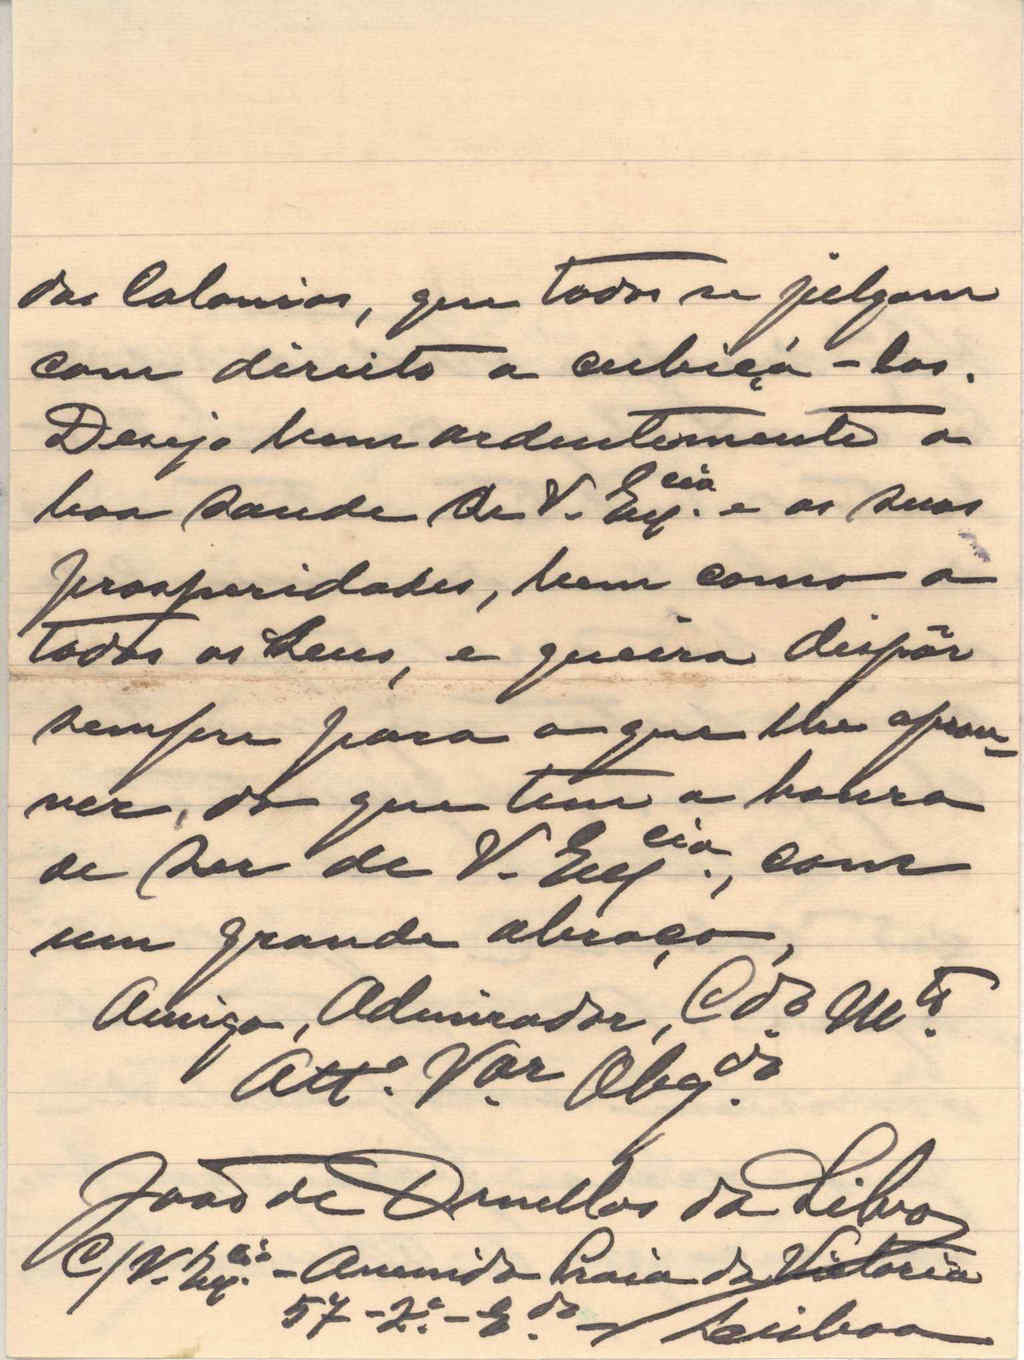 das Colonias, que todos se julgam
com direito a cubiçá-las.
Desejo bem ardentemente a
boa saude de V. Exª.cia e as suas
prosperidades, bem como a
todos os Seus, e queira dispôr
sempre para o que lhe aprou-
ver, do que tem a honra
de ser de V. Ex.cia, com
um grande abraço,
Amigo, Admirador, C.do M.to
Att.o V.or Obg.do
João de Ornellas da Silva
C/V. Ex.cia - Avenida Praia da Victoria
57 - 2.º - E.do - Lisboa